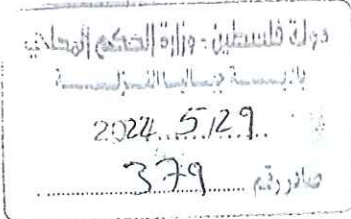 دولة فلسطين - وزارة الحكم المحلي
بلديــــة
2024..5/29..
صادر رقم ...... 379 ......